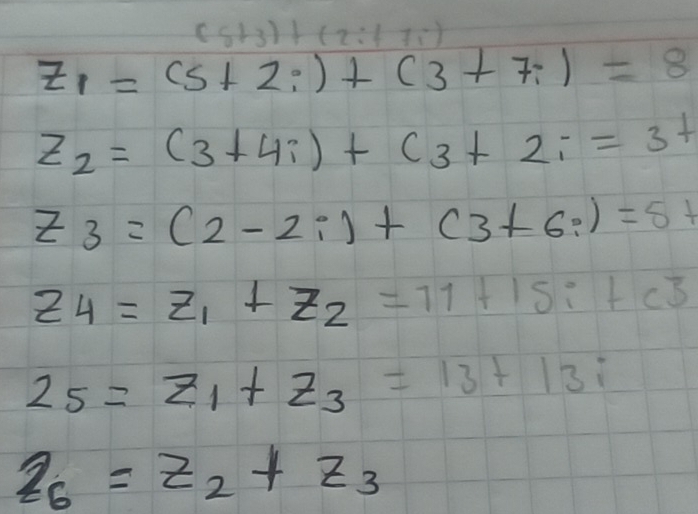 (5+3)+(2i+7i)
Z₁ = (5+2i)+(3+7i) = 8
Z₂ = (3+4i)+(3+2i = 3+
Z3 = (2-2i)+(3+6i) = 5+
Z4 = Z₁+Z₂ = 11+15i+c3
25 = Z₁+Z₃ = 13+13i
Z₆ = Z₂+Z₃